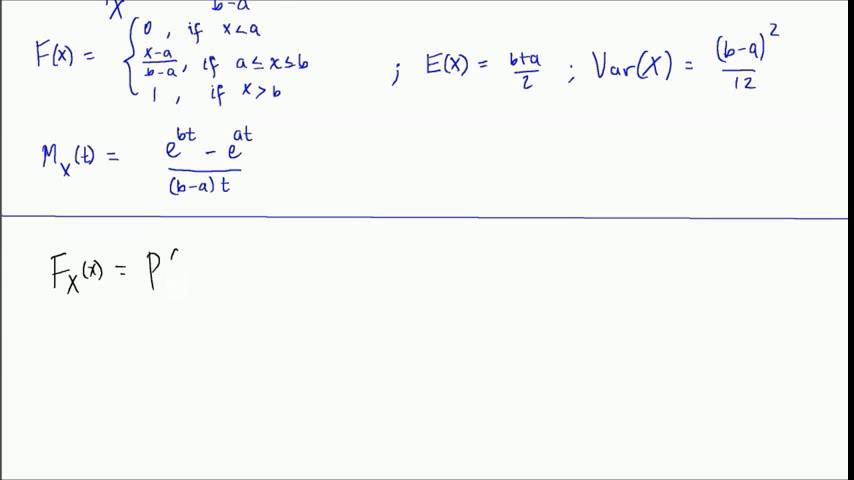 X b-a
F(x) = { 0 , if x<a
x-a/b-a , if a≤x≤b ; E(x) = b+a/2 ; Var(X) = (b-a)²/12
1 , if x>b
M_X(t) = e^bt - e^at/(b-a)t
F_X(x) = P